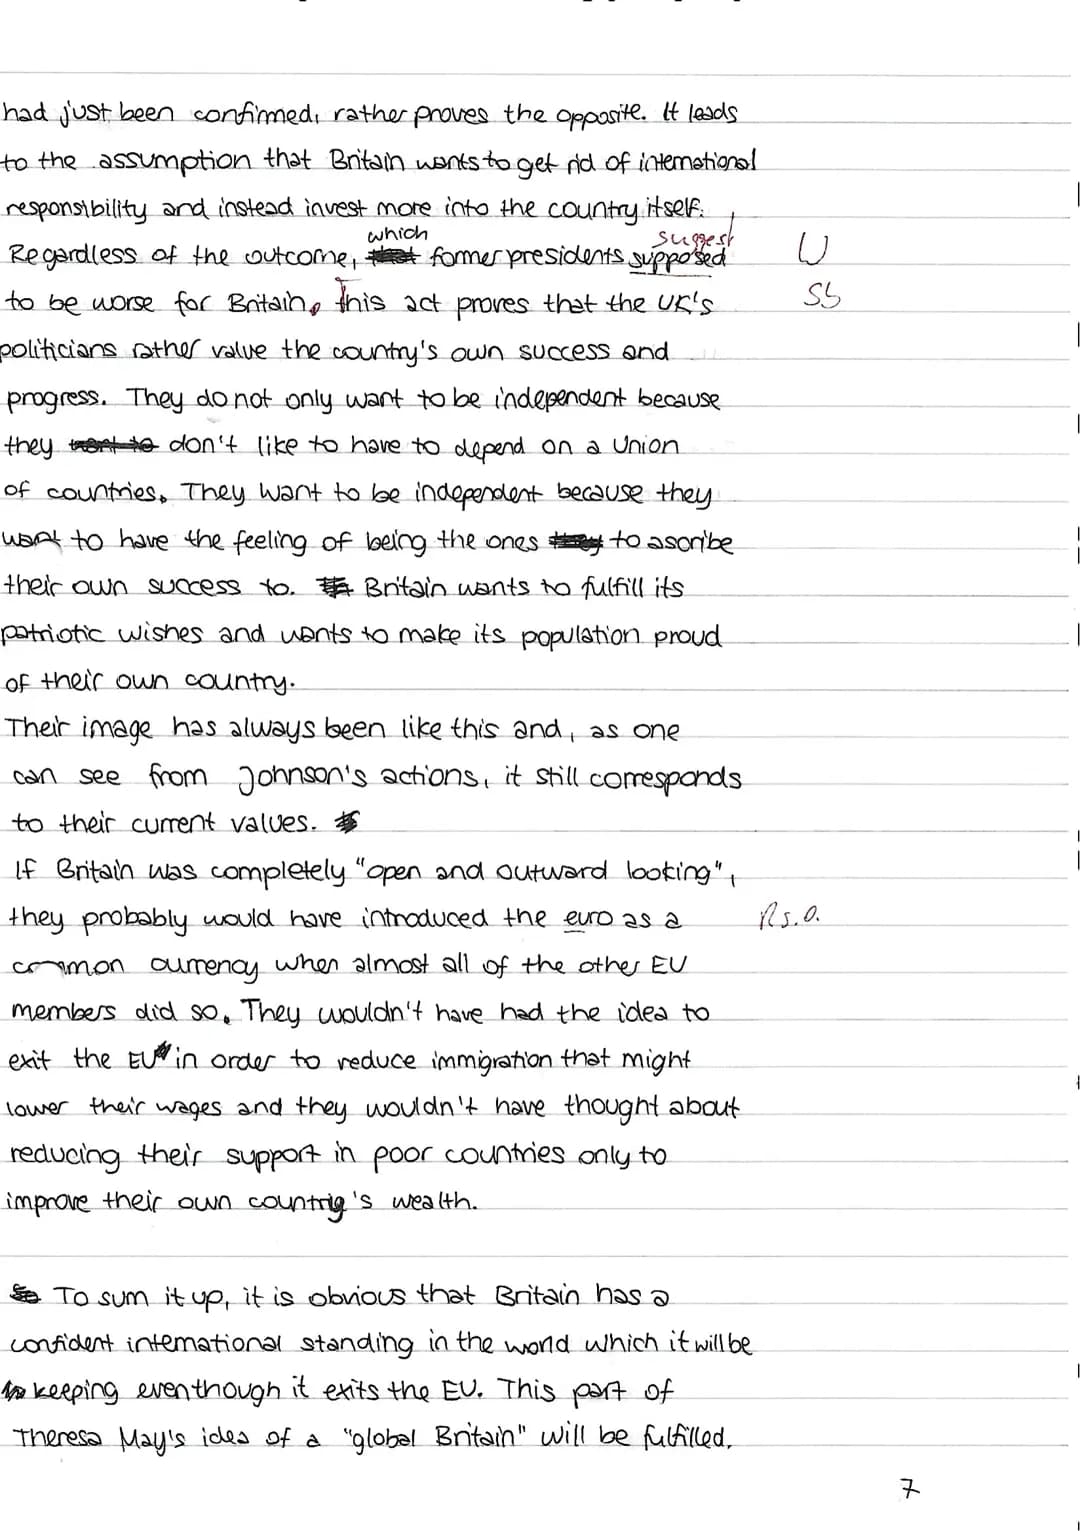 had just been confirmed, rather proves the opposite. It leads
to the assumption that Britain wants to get rid of international
responsibility and instead invest more into the country itself.
which suggest
Regardless of the outcome, that former presidents supposed U
to be worse for Britain, this act proves that the UK's Sb
politicians rather value the country's own success and
progress. They do not only want to be independent because
they want to don't like to have to depend on a Union
of countries. They want to be independent because they
want to have the feeling of being the ones they to ascribe
their own success to. Britain wants to fulfill its
patriotic wishes and wants to make its population proud
of their own country.
Their image has always been like this and, as one
can see from Johnson's actions, it still corresponds
to their current values.
If Britain was completely "open and outward looking",
they probably would have introduced the euro as a Rs.o.
common currency when almost all of the other EU
members did so. They wouldn't have had the idea to
exit the EU in order to reduce immigration that might
lower their wages and they wouldn't have thought about
reducing their support in poor countries only to
improve their own country's wealth.
To sum it up, it is obvious that Britain has a
confident international standing in the world which it will be
keeping eventhough it exits the EU. This part of
Theresa May's idea of a "global Britain" will be fulfilled.
7